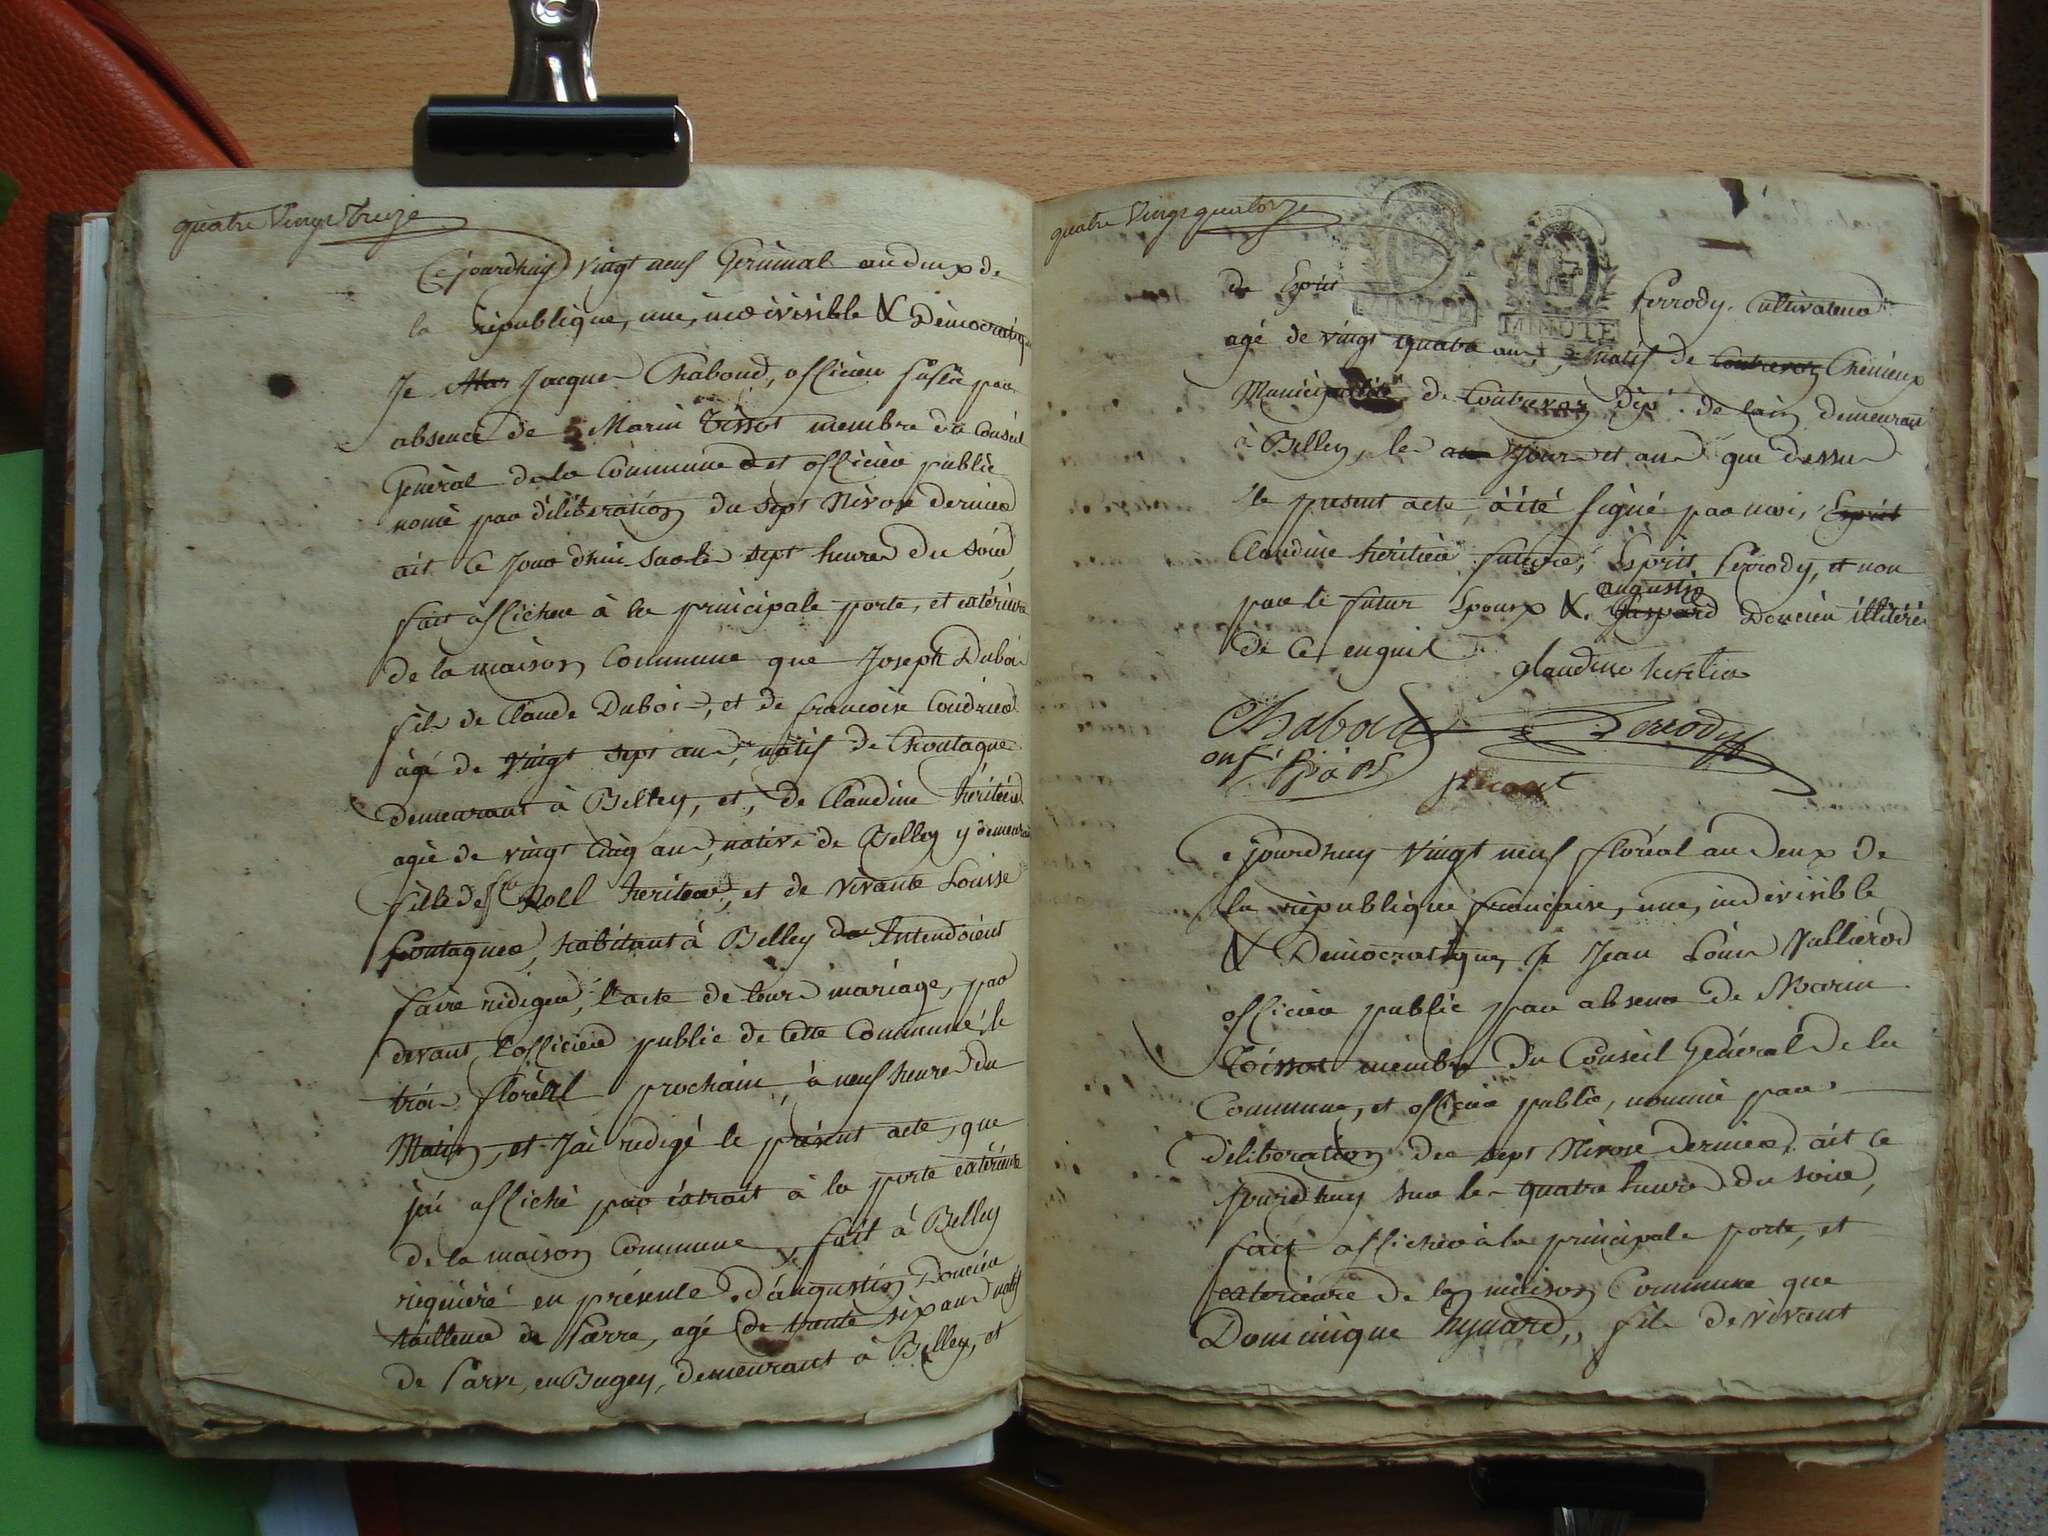 quatre Vingt Treize
Cejourdhuy vingt neuf Germinal an deux de
la république, une, indivisible & Démocratique
Je Jacques Chaboud, officier
absence de Marin Tissot membre du Conseil
Général de la Commune et officier public
nomé par déliberation du sept Nivose dernier
ait ce Jour dhui sur les sept heures du soir,
fait afficher à la principale porte, et extérieure
de la maison Commune que Joseph Dubois
fils de Claude Dubois, et de francoise
âgé de vingt sept ans, natif de Chontagne
demeurant à Belley, et, de Claudine héritier
agée de vingt cinq ans, native de Belley y demeurant
fille de Noll héritier, et de vivante Louisse
, habitant à Belley Intendoient
faire rédiger, l'acte de leur mariage, par
devant l'officier public de cette Commune, le
trois floréal prochain, à neuf heures du
Matin, et Jai redigé le présent acte, que
jai affiché par extrait à la porte extérieure
de la maison Commune, fait à Belley
en présence d'augustin Doucien
tailleur de Pierre, agé de trante six ans natif
de Parve, en Bugey, demeurant à Belley, et
quatre Vingt quatorze
MINUTE MINUTE
de Esprit Ferrody, Cultivateur
agé de vingt quatre ans, natif de Contrevoz Chemieux
Municipalité de Contrevoz dép.t de lain demeurant
à Belley, les jours et ans que dessus
le présent acte à été signé par moi, Esprit
Claudine héritier future, Esprit Ferrody, et non
augustin
par le futur Epoux &. Gaspard Doucien illitéré
de ce enquis
glaudine heritier
Chaboud Ferrody
off. p.
Cejourdhuy vingt neuf floréal an deux de
la république francaise, une, indivisible
& Démocratique, Je Jean Louis Vullierod
officier public par absence de Marin
Tissot membre du Conseil Général de la
Commune, et officier public, nommé par
déliberation du sept Nivose dernier, ait ce
jourdhuy sur les quatre heures du soir,
fait afficher à la principale porte, et
exterieure de la maison Commune que
Dominique hynard, fils de vivant